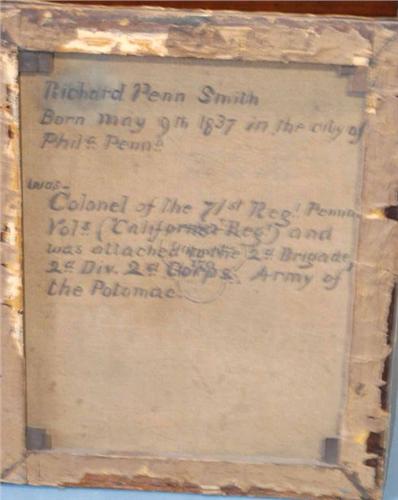 Richard Penn Smith
Born may 9th 1837 in the city of
Phila Penna
was-
Colonel of the 71st Regt Penna
Vols ("California Regt") and
was attached to the 2d Brigade,
2d Div. 2d Corps. Army of
the Potomac.